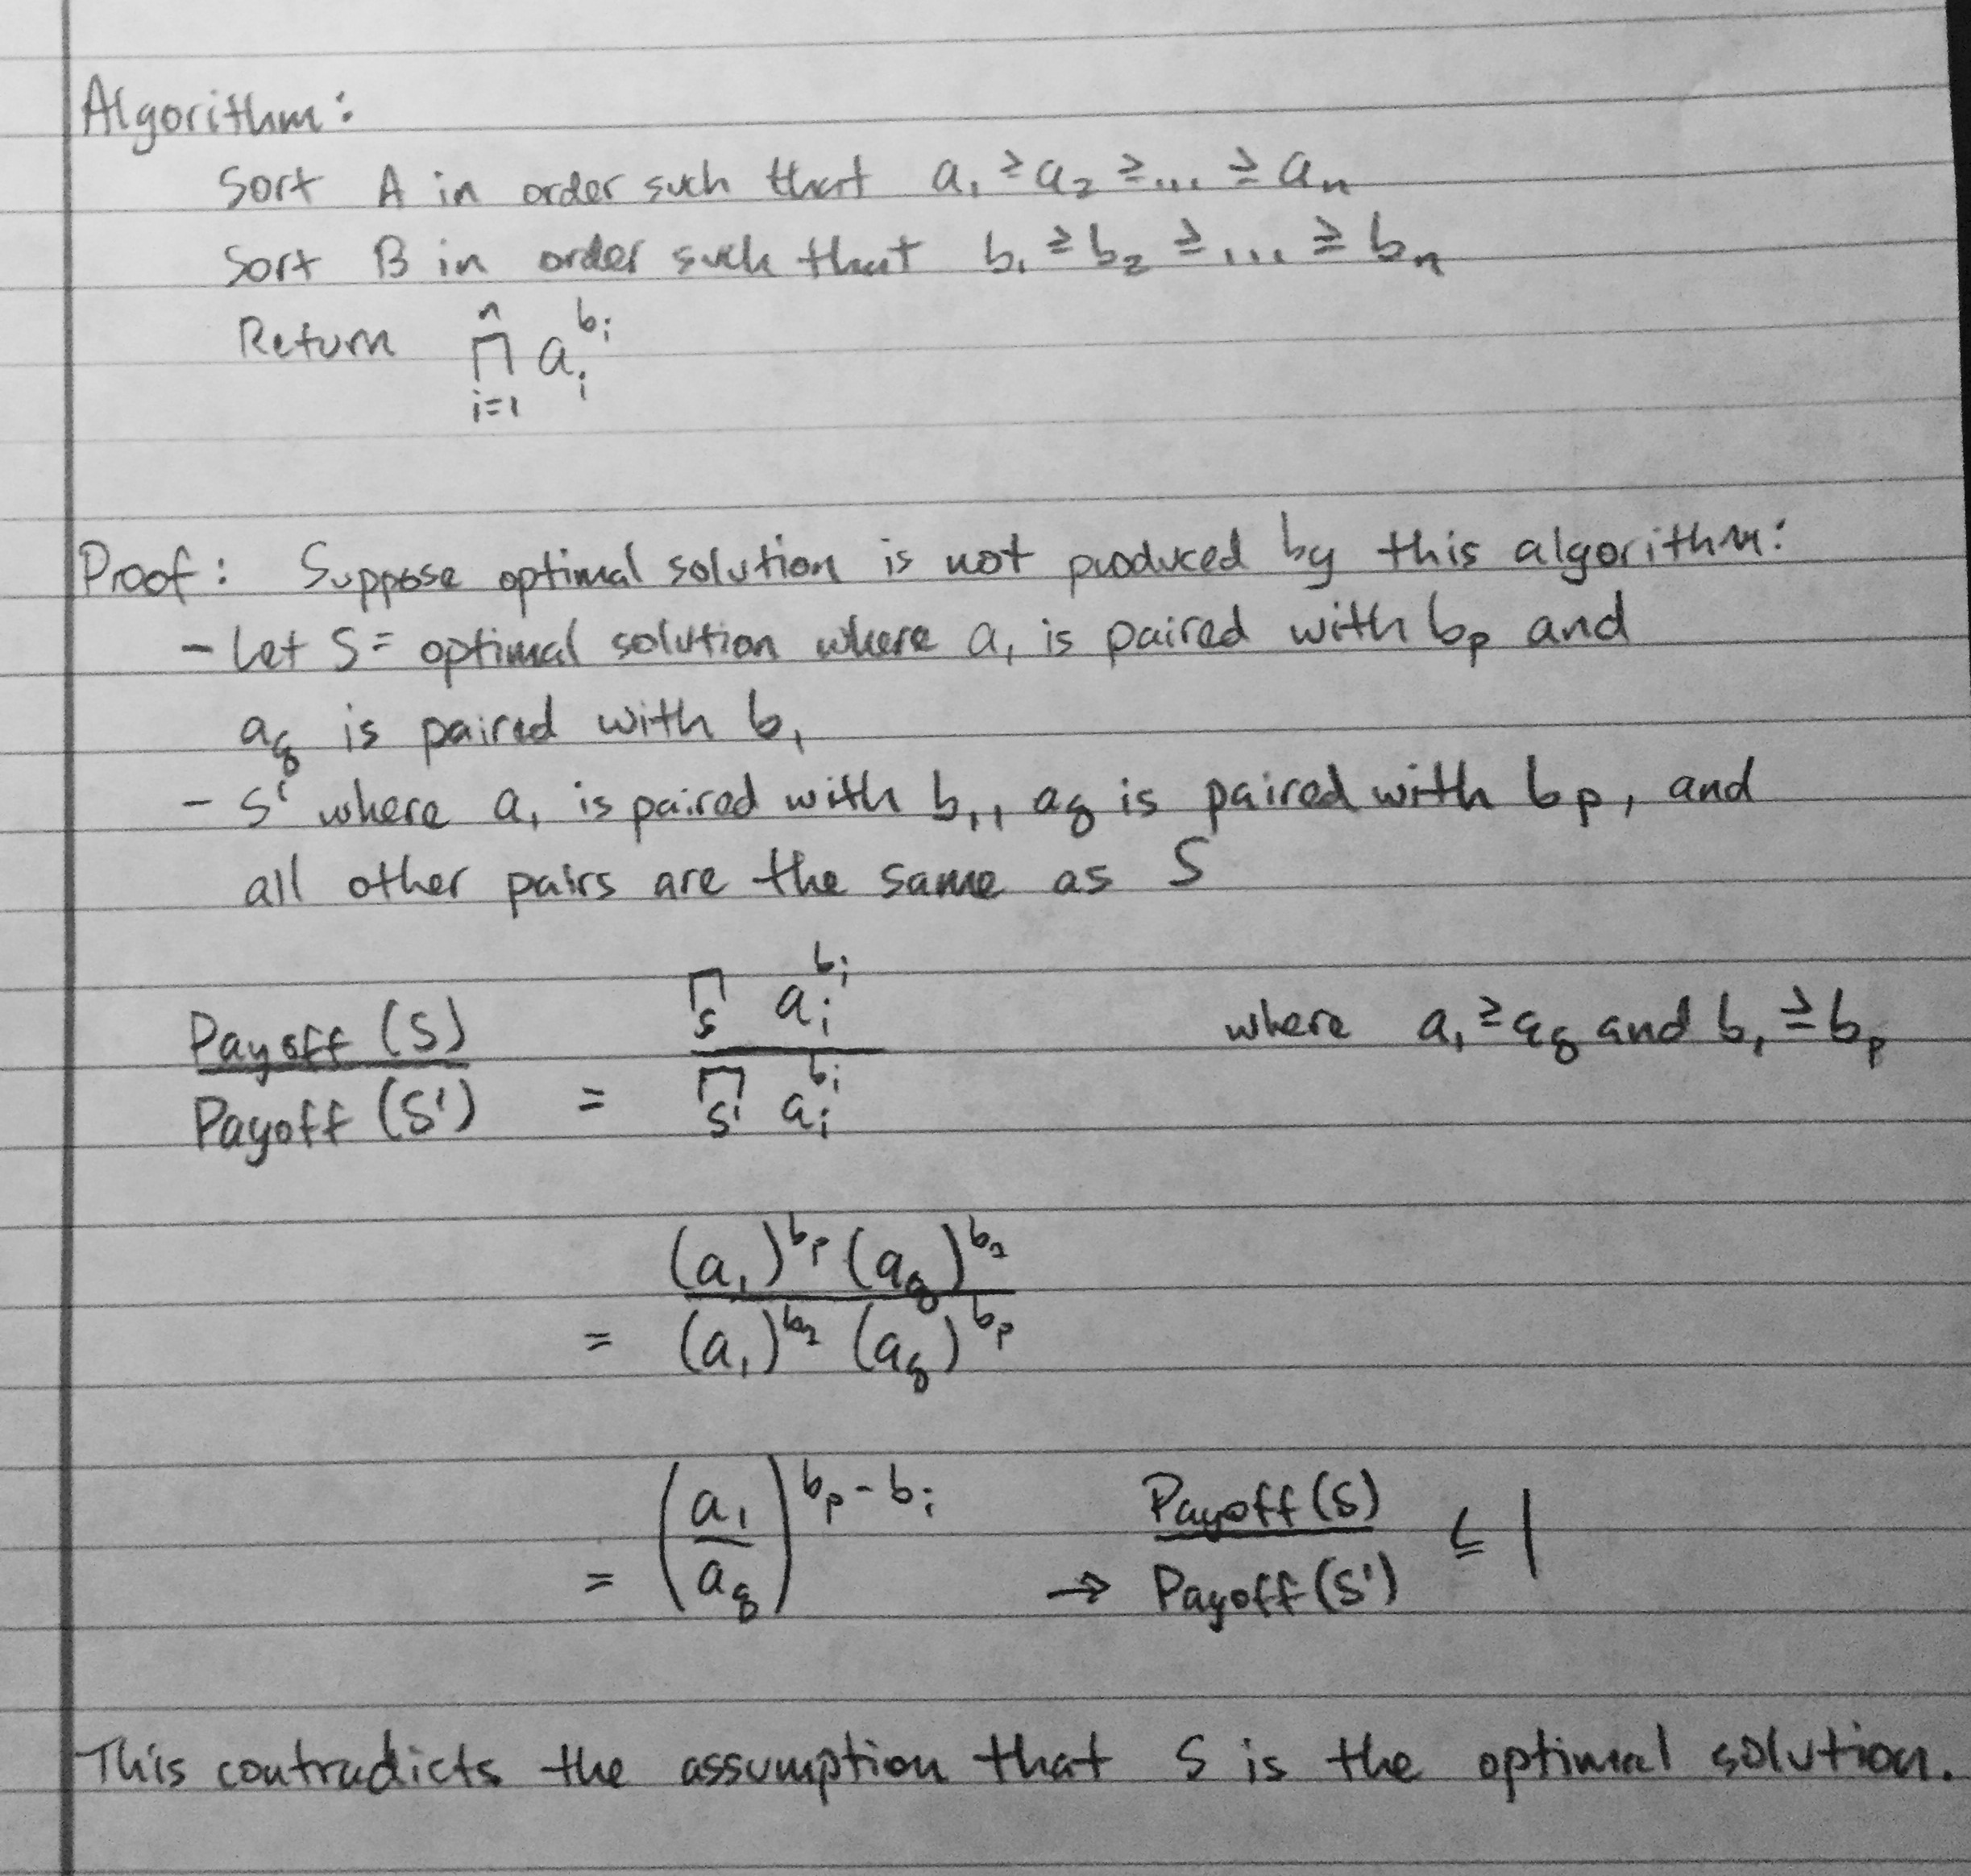 Algorithm:
Sort A in order such that a₁ ≥ a₂ ≥ ... ≥ aₙ
Sort B in order such that b₁ ≥ b₂ ≥ ... ≥ bₙ
Return ∏_{i=1}^{n} a_i^{b_i}
Proof: Suppose optimal solution is not produced by this algorithm:
- Let S = optimal solution where a₁ is paired with b_p and
a_q is paired with b₁
- S' where a₁ is paired with b₁, a_q is paired with b_p, and
all other pairs are the same as S
Payoff (S) / Payoff (S') = ∏_S a_i^{b_i} / ∏_{S'} a_i^{b_i} where a₁ ≥ a_q and b₁ ≥ b_p
= (a₁)^{b_p} (a_q)^{b₁} / (a₁)^{b₁} (a_q)^{b_p}
= (a₁ / a_q)^{b_p - b_i} → Payoff (S) / Payoff (S') ≤ 1
This contradicts the assumption that S is the optimal solution.